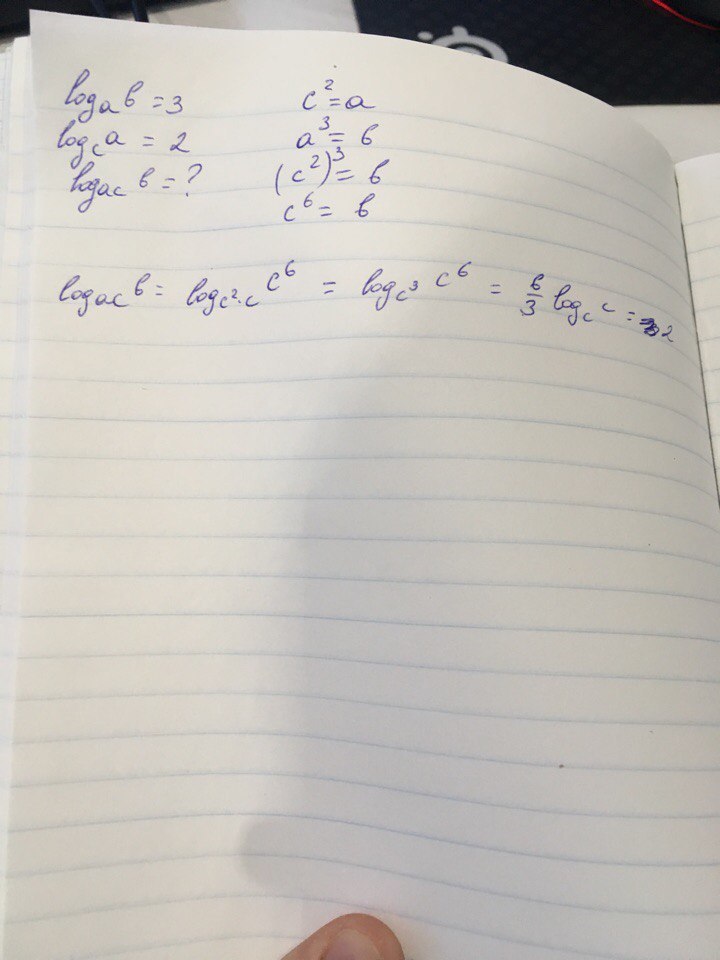 logₐb = 3
c² = a
log_c a = 2
a³ = b
log_ac b = ?
(c²)³ = b
c⁶ = b
log_ac b = log_c²·c c⁶ = log_c³ c⁶ = 6/3 log_c c = 2